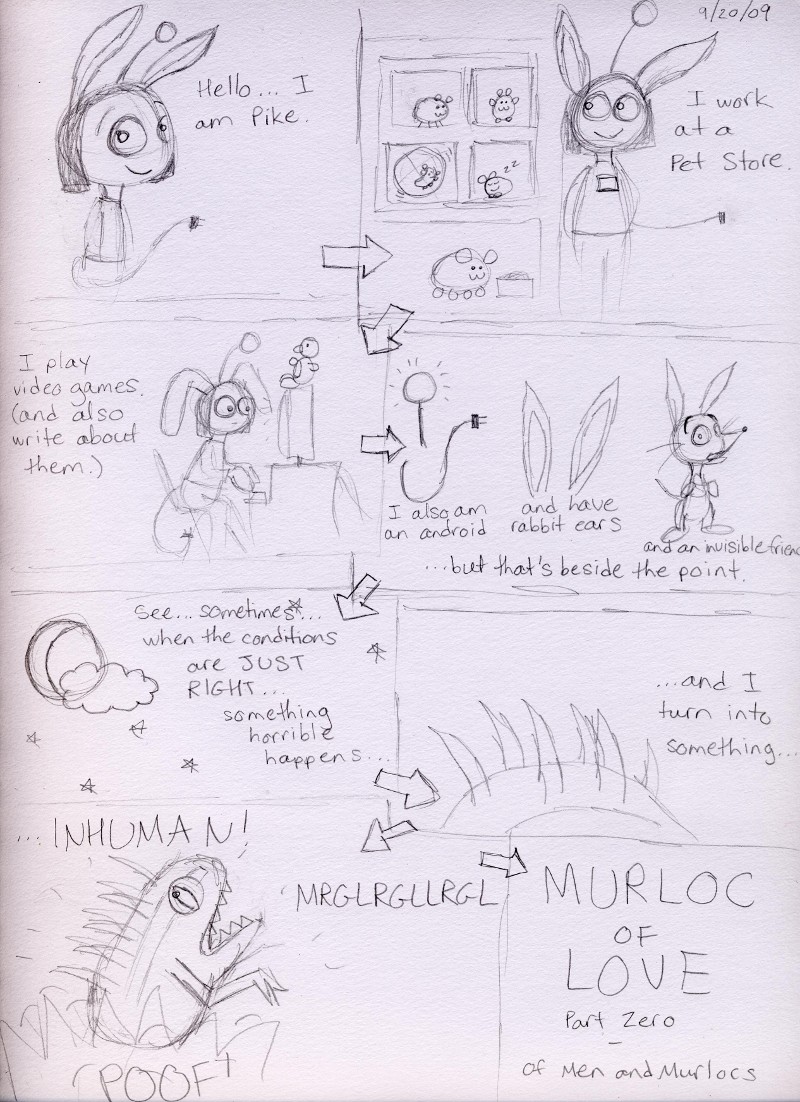 9/20/09
Hello... I
am Pike.
I work
at a
Pet Store.
z z
I play
video games.
(and also
write about
them.)
I also am
an android
and have
rabbit ears
and an invisible friend
...but that's beside the point.
See... sometimes...
when the conditions
are JUST
RIGHT...
something
horrible
happens...
...and I
turn into
something...
...INHUMAN!
MRGLRGLLRGL
*POOF*
MURLOC
OF
LOVE
Part Zero
-
Of Men and Murlocs